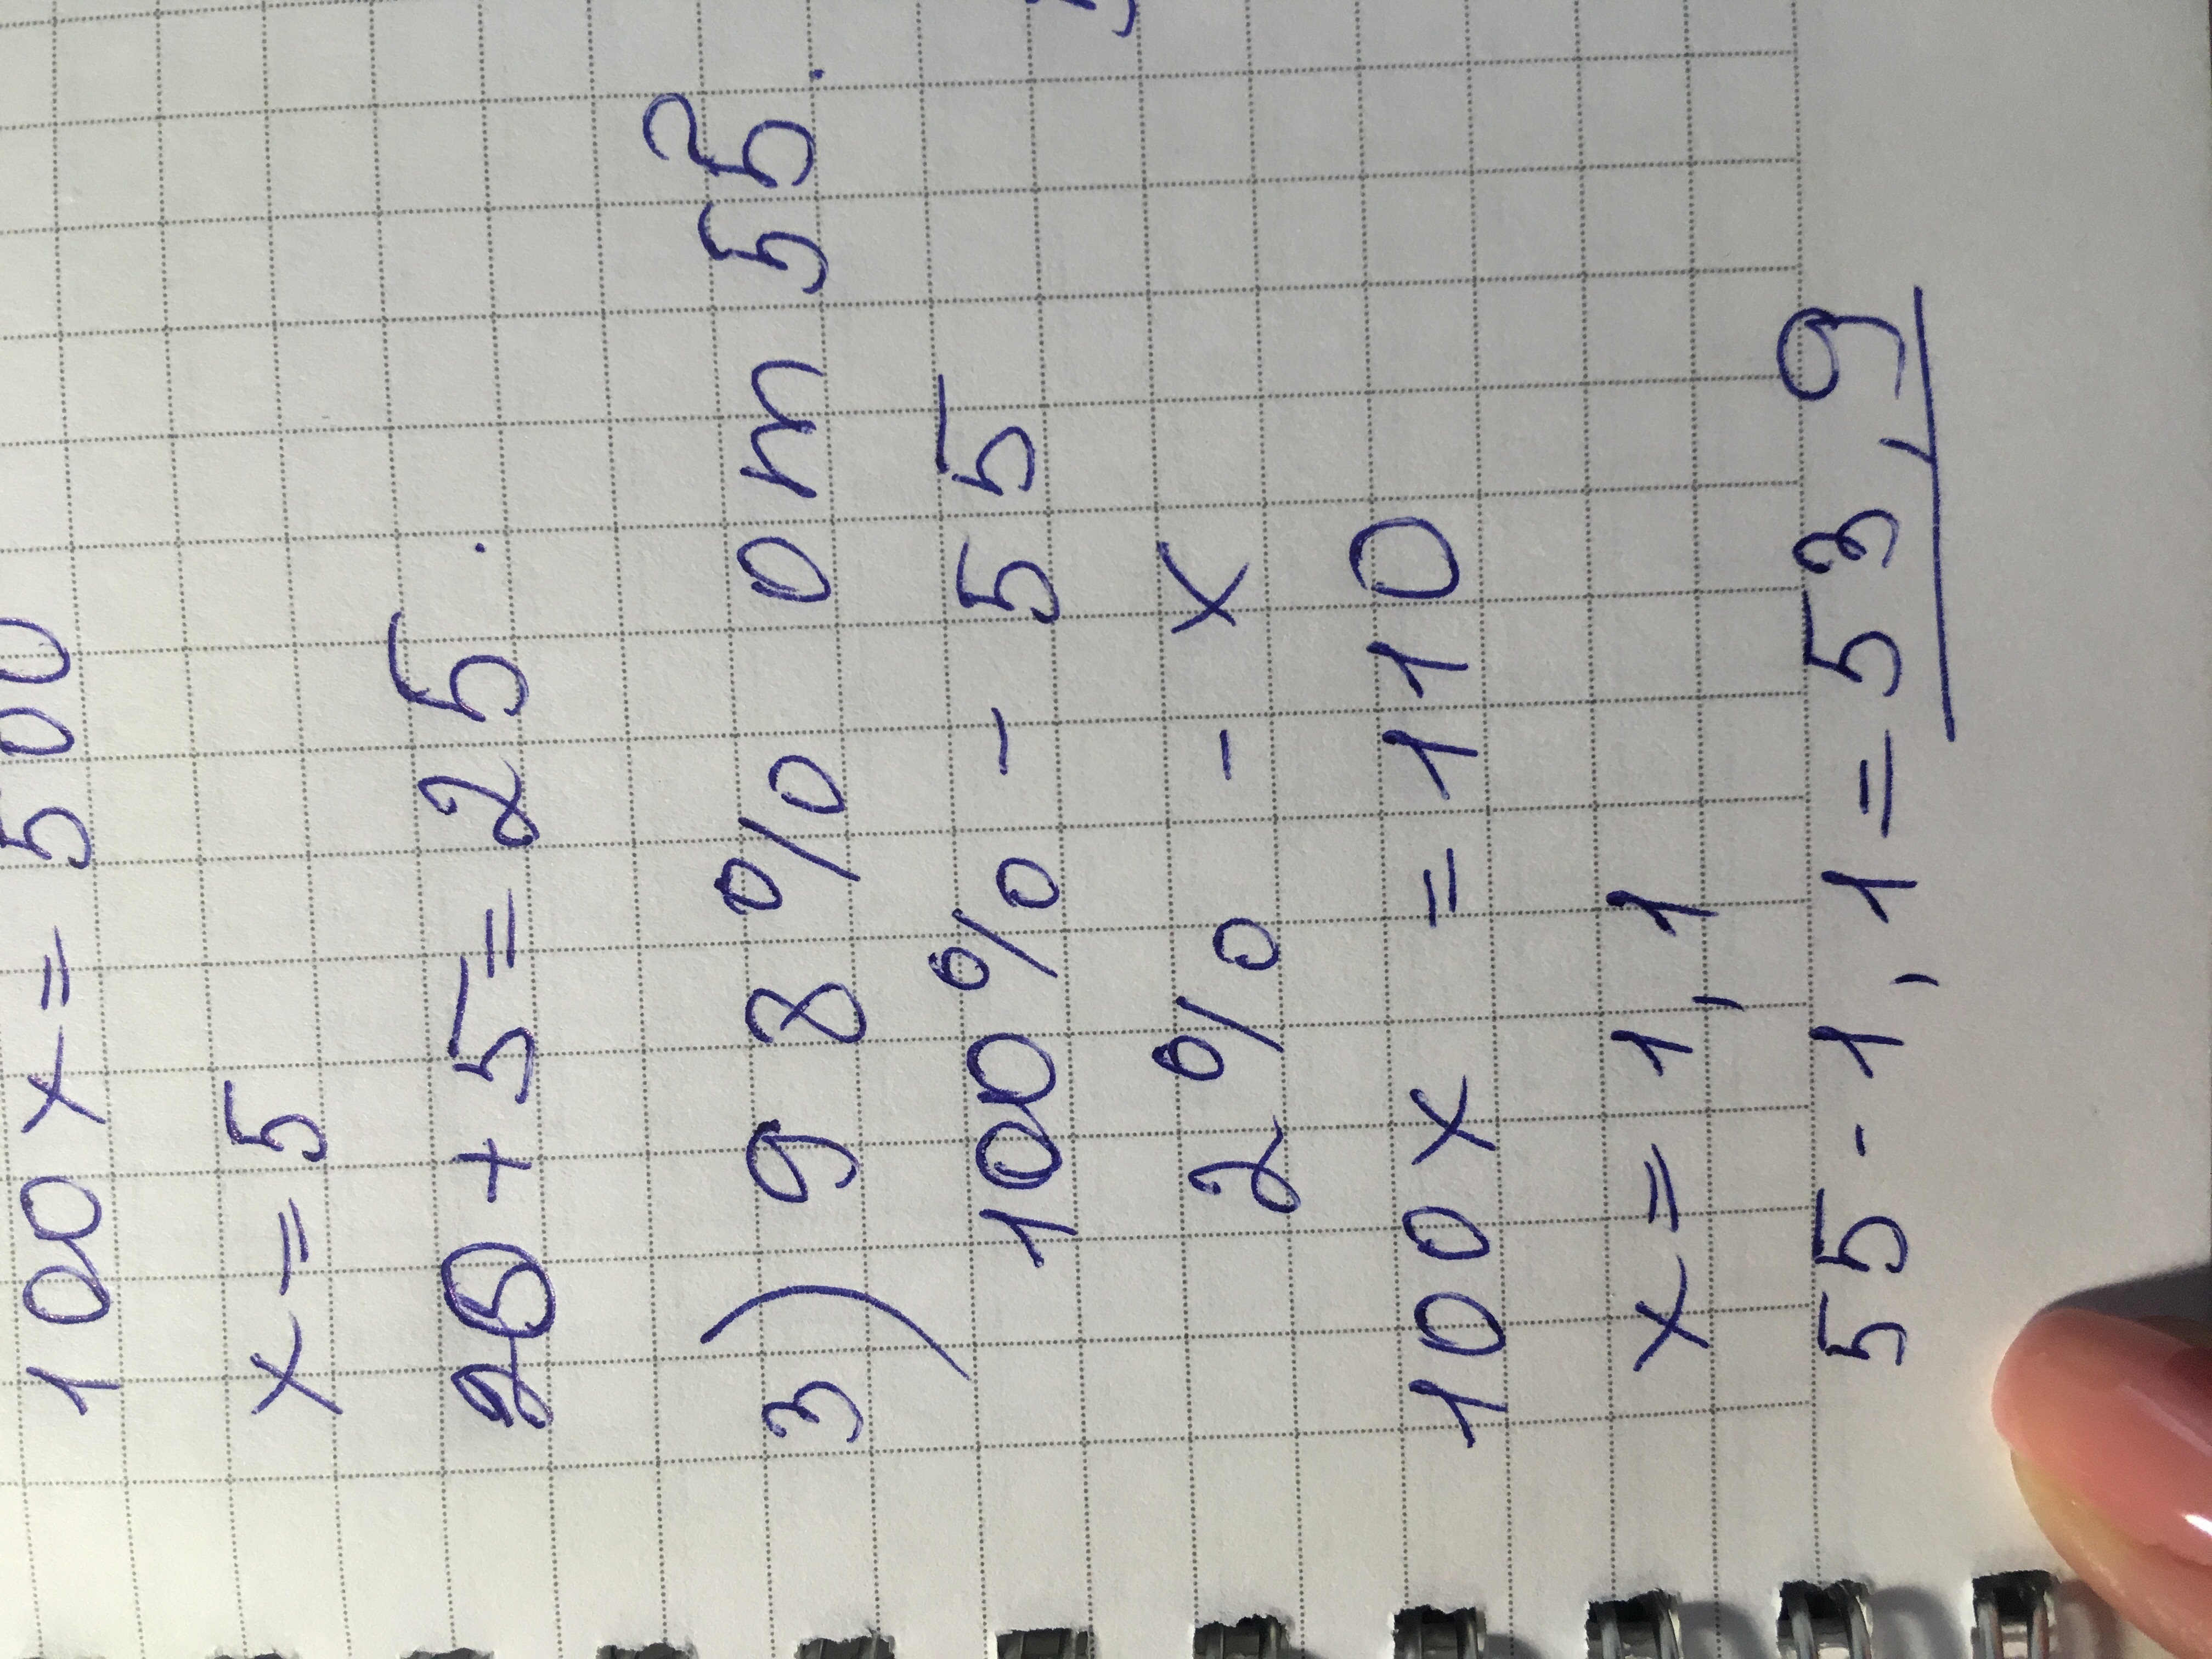 100x = 500
x = 5
20 + 5 = 25.
3) 98% от 55?
100% - 55
2% - x
100x = 110
x = 1,1
55 - 1,1 = 53,9